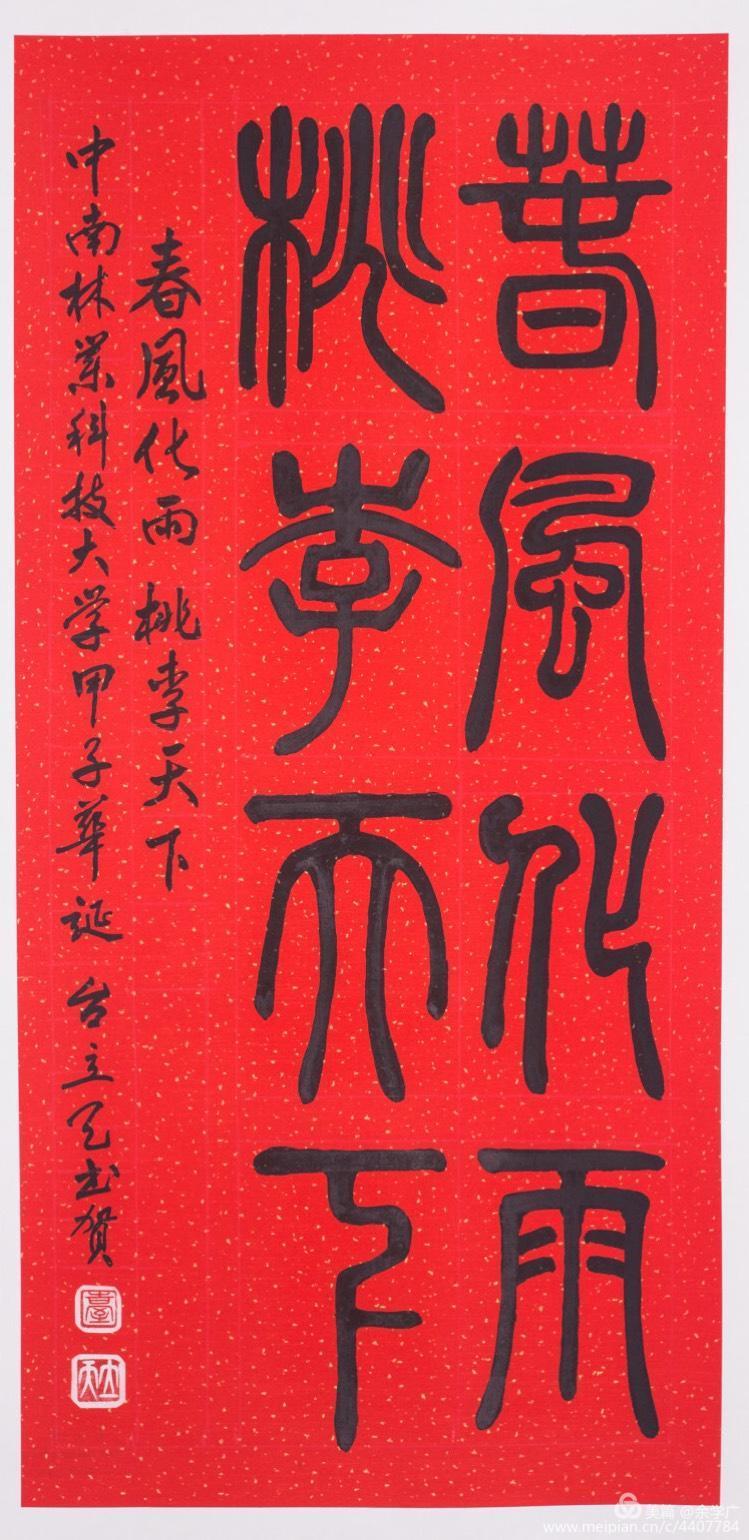 春風化雨
桃李天下
春風化雨桃李天下
中南林業科技大学甲子華誕 台立天书贺
美篇 @余学广
www.meipian.cn/c/4407784